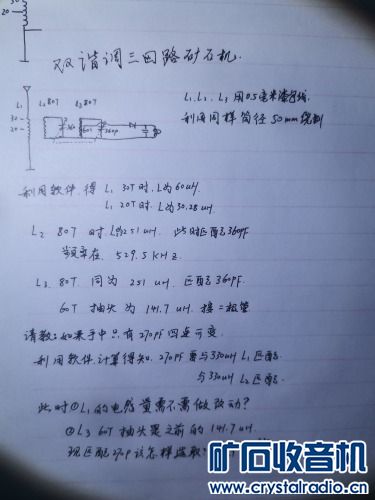 30
20
双谐调三回路矿石机.
L₁ L₂80T L₃80T
30
20
60T 360p
L₁. L₂. L₃ 用0.5毫米漆包线.
利用同样筒径50mm绕制
利用软件.得 L₁ 30T时.L为60uH.
L₁ 20T时.L为30.28uH
L₂ 80T 时 L为251uH. 此时匹配360PF
当频率在. 529.5KHz.
L₃. 80T. 同为 251 uH. 匹配 360PF.
60T 抽头为 141.7 uH. 接二极管
请教:如果手中只有270PF四连可变.
利用软件.计算得知. 270PF要与330uH L₁匹配.
与330uH L₂匹配.
此时①L₁的电感量需不需做改动?
②L₃ 60T 抽头是之前的 141.7uH.
现匹配270P该怎样选取?
矿石收音机
www.crystalradio.cn